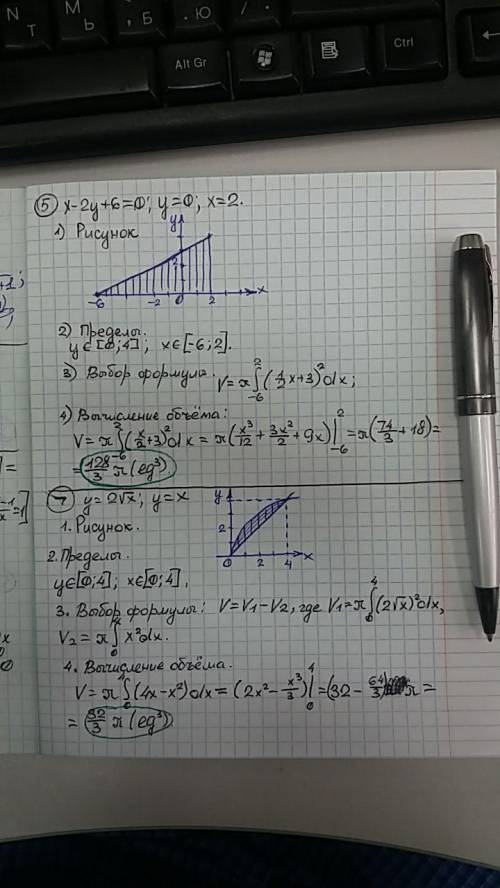 N
T
M
Ь
, Б
. Ю
/ .
Alt Gr
Ctrl
⑤ x-2y+6=0; y=0; x=2.
1) Рисунок
y
2
-6 -2 0 2 x
2) Пределы.
y∈[0;4]; x∈[-6;2].
3) Выбор формулы. V=π∫₋₆²(1/2x+3)²dx;
4) Вычисление объёма:
V=π∫₋₆²(x/2+3)²dx=π(x³/12+3x²/2+9x)|₋₆²=π(74/3+18)=
=128/3π(ед³)
⑦ y=2√x; y=x
1. Рисунок.
y
2
0 2 4 x
2. Пределы.
y∈[0;4]; x∈[0;4].
3. Выбор формулы: V=V₁-V₂, где V₁=π∫₀⁴(2√x)²dx,
V₂=π∫₀⁴x²dx.
4. Вычисление объёма.
V=π∫₀⁴(4x-x²)dx=(2x²-x³/3)|₀⁴=(32-64/3)π=
=32/3π(ед³)